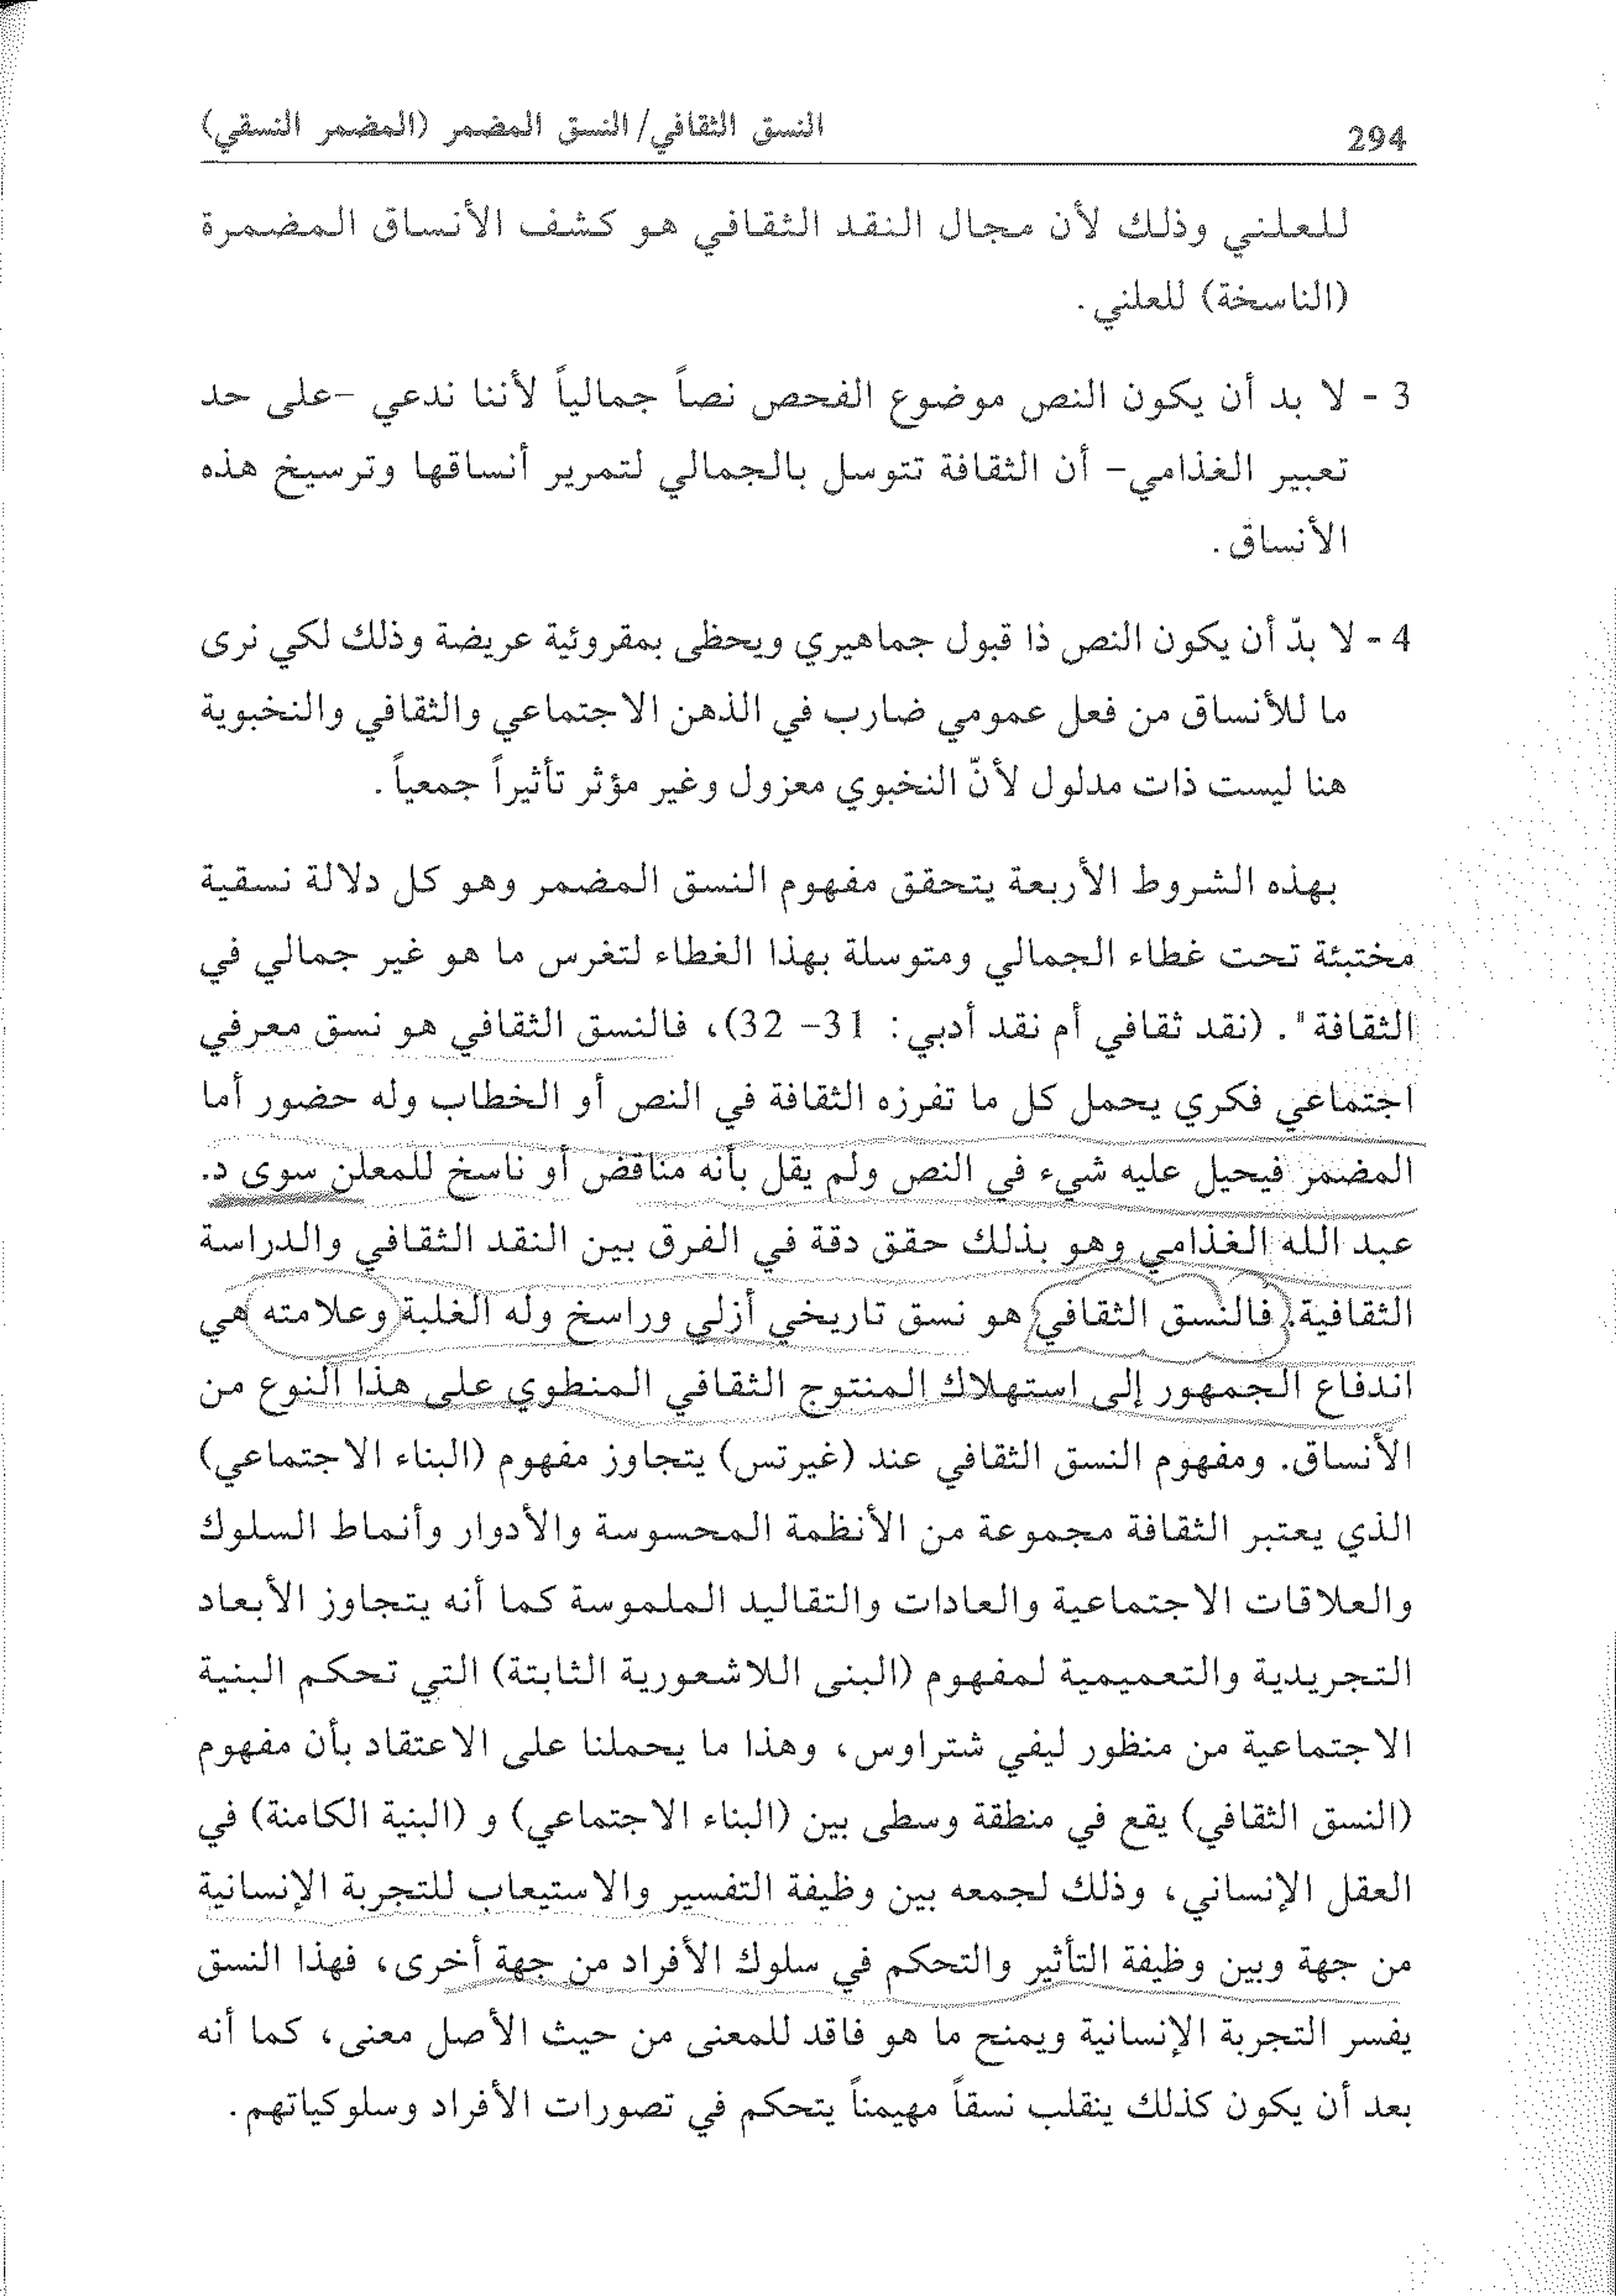 294
النسق الثقافي/ النسق المضمر (المضمر النسقي)
للعلني وذلك لأن مجال النقد الثقافي هو كشف الأنساق المضمرة
(الناسخة) للعلني.
3 - لا بد أن يكون النص موضوع الفحص نصاً جمالياً لأننا ندعي -على حد
تعبير الغذامي- أن الثقافة تتوسل بالجمالي لتمرير أنساقها وترسيخ هذه
الأنساق.
4 - لا بدّ أن يكون النص ذا قبول جماهيري ويحظى بمقروئية عريضة وذلك لكي نرى
ما للأنساق من فعل عمومي ضارب في الذهن الاجتماعي والثقافي والنخبوية
هنا ليست ذات مدلول لأنّ النخبوي معزول وغير مؤثر تأثيراً جمعياً.
بهذه الشروط الأربعة يتحقق مفهوم النسق المضمر وهو كل دلالة نسقية
مختبئة تحت غطاء الجمالي ومتوسلة بهذا الغطاء لتغرس ما هو غير جمالي في
الثقافة". (نقد ثقافي أم نقد أدبي: 31- 32)، فالنسق الثقافي هو نسق معرفي
اجتماعي فكري يحمل كل ما تفرزه الثقافة في النص أو الخطاب وله حضور أما
المضمر فيحيل عليه شيء في النص ولم يقل بأنه مناقض أو ناسخ للمعلن سوى د.
عبد الله الغذامي وهو بذلك حقق دقة في الفرق بين النقد الثقافي والدراسة
الثقافية. فالنسق الثقافي هو نسق تاريخي أزلي وراسخ وله الغلبة وعلامته هي
اندفاع الجمهور إلى استهلاك المنتوج الثقافي المنطوي على هذا النوع من
الأنساق. ومفهوم النسق الثقافي عند (غيرتس) يتجاوز مفهوم (البناء الاجتماعي)
الذي يعتبر الثقافة مجموعة من الأنظمة المحسوسة والأدوار وأنماط السلوك
والعلاقات الاجتماعية والعادات والتقاليد الملموسة كما أنه يتجاوز الأبعاد
التجريدية والتعميمية لمفهوم (البنى اللاشعورية الثابتة) التي تحكم البنية
الاجتماعية من منظور ليفي شتراوس، وهذا ما يحملنا على الاعتقاد بأن مفهوم
(النسق الثقافي) يقع في منطقة وسطى بين (البناء الاجتماعي) و (البنية الكامنة) في
العقل الإنساني، وذلك لجمعه بين وظيفة التفسير والاستيعاب للتجربة الإنسانية
من جهة وبين وظيفة التأثير والتحكم في سلوك الأفراد من جهة أخرى، فهذا النسق
يفسر التجربة الإنسانية ويمنح ما هو فاقد للمعنى من حيث الأصل معنى، كما أنه
بعد أن يكون كذلك ينقلب نسقاً مهيمناً يتحكم في تصورات الأفراد وسلوكياتهم.